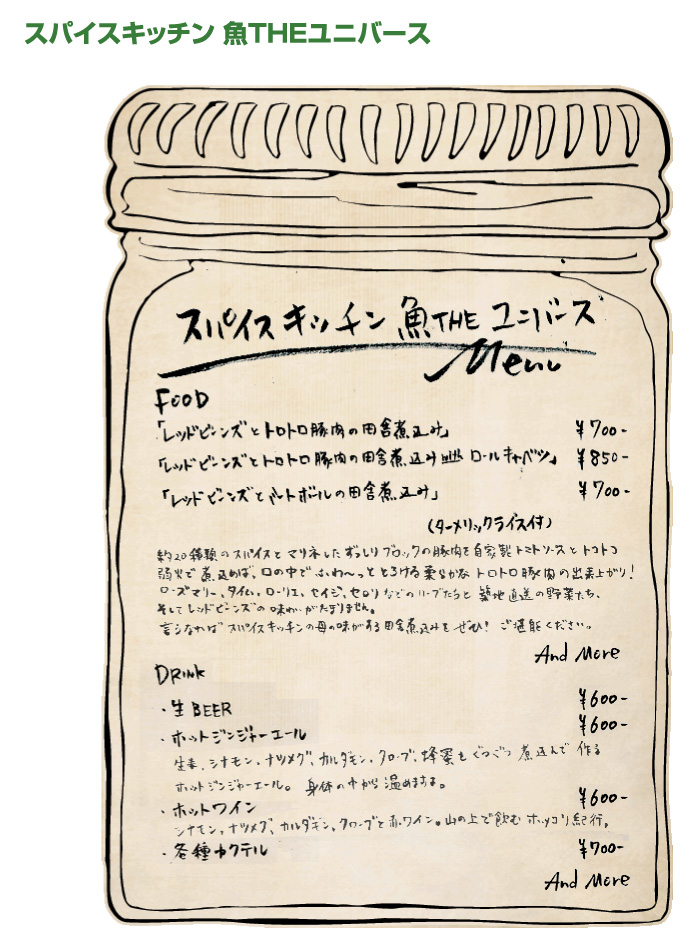 スパイスキッチン 魚THEユニバース
スパイスキッチン 魚THE ユニバース
Menu
FOOD
「レッドビーンズとトロトロ豚肉の田舎煮込み」 ¥700-
「レッドビーンズとトロトロ豚肉の田舎煮込み ロールキャベツ」 ¥850-
「レッドビーンズとミートボールの田舎煮込み」 ¥700-
(ターメリックライス付)
約20種類のスパイスとマリネしたずっしりブロックの豚肉を自家製トマトソースとトコトコ
弱火で煮込めば、口の中でふわ〜っととろける柔らかなトロトロ豚肉の出来上がり!
ローズマリー、タイム、ローリエ、セイジ、セロリなどのハーブたちと築地直送の野菜たち、
そしてレッドビーンズの味わいがたまりません。
言うなれば スパイスキッチンの母の味がする田舎煮込みを ぜひ! ご堪能ください。
And More
DRINK
・生BEER ¥600-
・ホットジンジャーエール ¥600-
生姜、シナモン、ナツメグ、カルダモン、クローブ、蜂蜜をぐつぐつ煮込んで作る
ホットジンジャーエール。 身体の中から温めますよ。
・ホットワイン ¥600-
シナモン、ナツメグ、カルダモン、クローブと赤ワイン。山の上で飲む ホッコリ紀行。
・各種カクテル ¥700-
And More